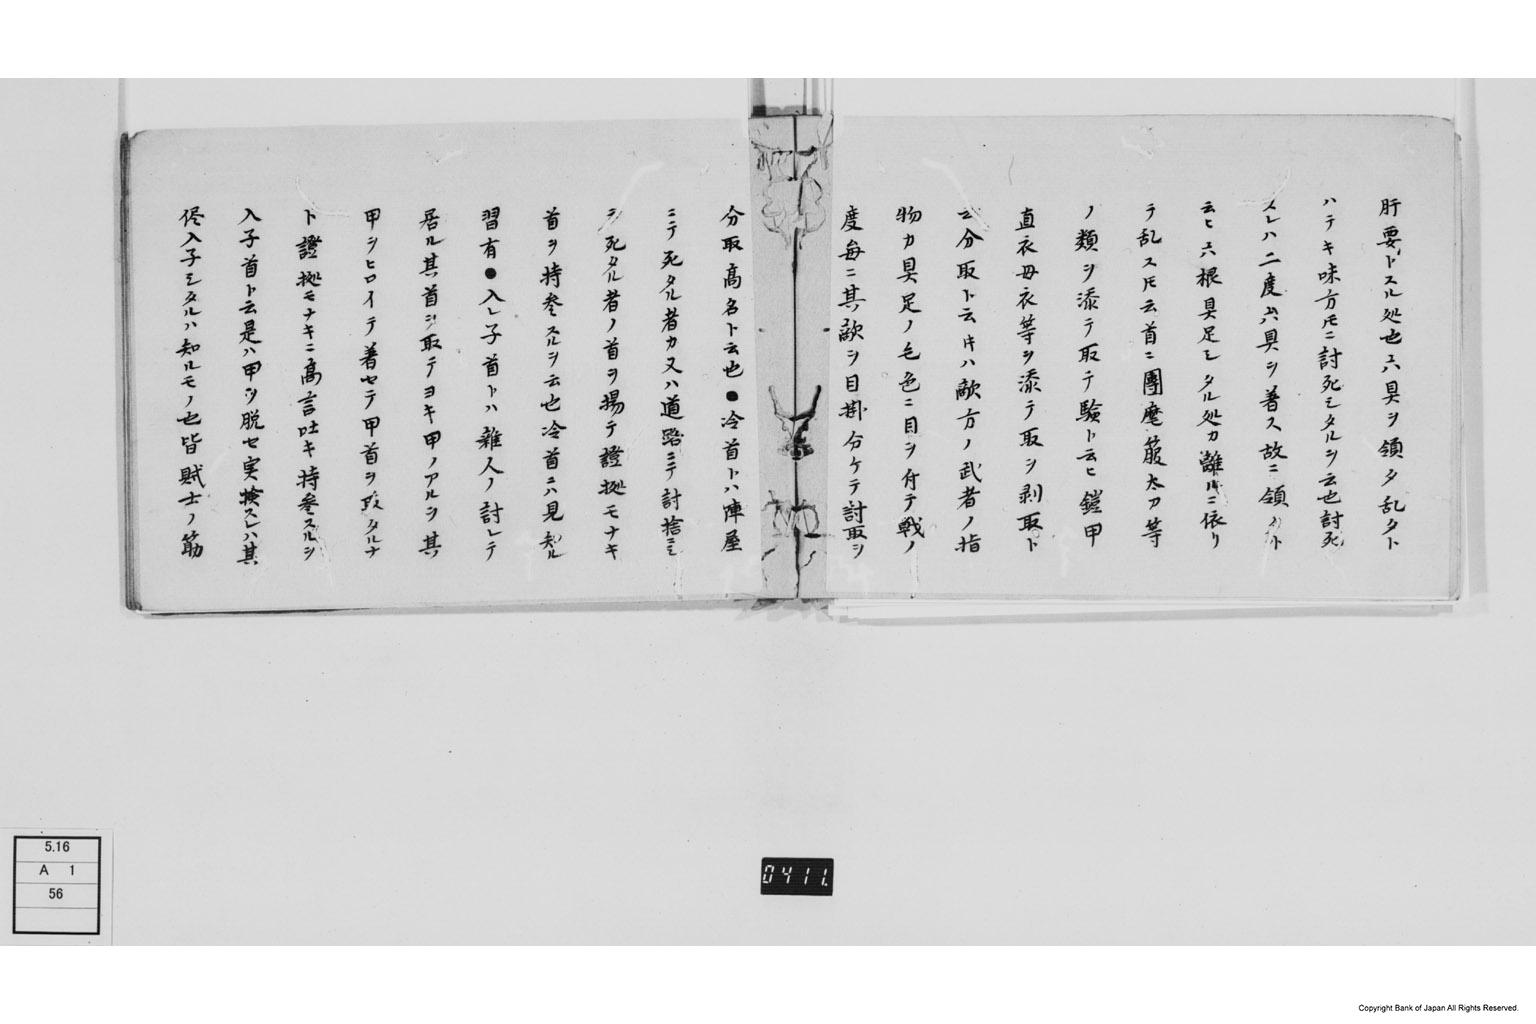 肝要トスル処也六具ヲ領タ乱タト
ハテキ味方𪜈ニ討死シタルヲ云也討死
スレハ二度六具ヲ着ス故ニ領タト
云ヒ六根具足シタル処カ離ルニ依リ
テ乱ス𪜈云首ニ團麾箙太刀等
ノ類ヲ添テ取テ驗ト云ヒ鎧甲
直衣母衣等ヲ添テ取ヲ剥取ト
云分取ト云𪜈ハ敵方ノ武者ノ指
物カ具足ノ毛色ニ目ヲ付テ戦ノ
度毎ニ其敵ヲ目掛分ケテ討取ヲ
分取高名ト云也●冷首トハ陣屋
ニテ死タル者カ又ハ道路ニテ討捨ニシ
死タル者ノ首ヲ揚テ證拠モナキ
首ヲ持参スルヲ云也冷首ニハ見知ル
習有●入レ子首トハ雜人ノ討レテ
居ル其首ヲ取テヨキ甲ノアルヲ其
甲ヲヒロイテ著セテ甲首ヲ取タルナ
ト證拠モナキニ高言吐キ持参スルヲ
入子首ト云是ハ甲ヲ脱セ実検スレハ其
侭入子シタルハ知ルモノ也皆賊士ノ筋
5.16
A 1
56
0411
Copyright Bank of Japan All Rights Reserved.